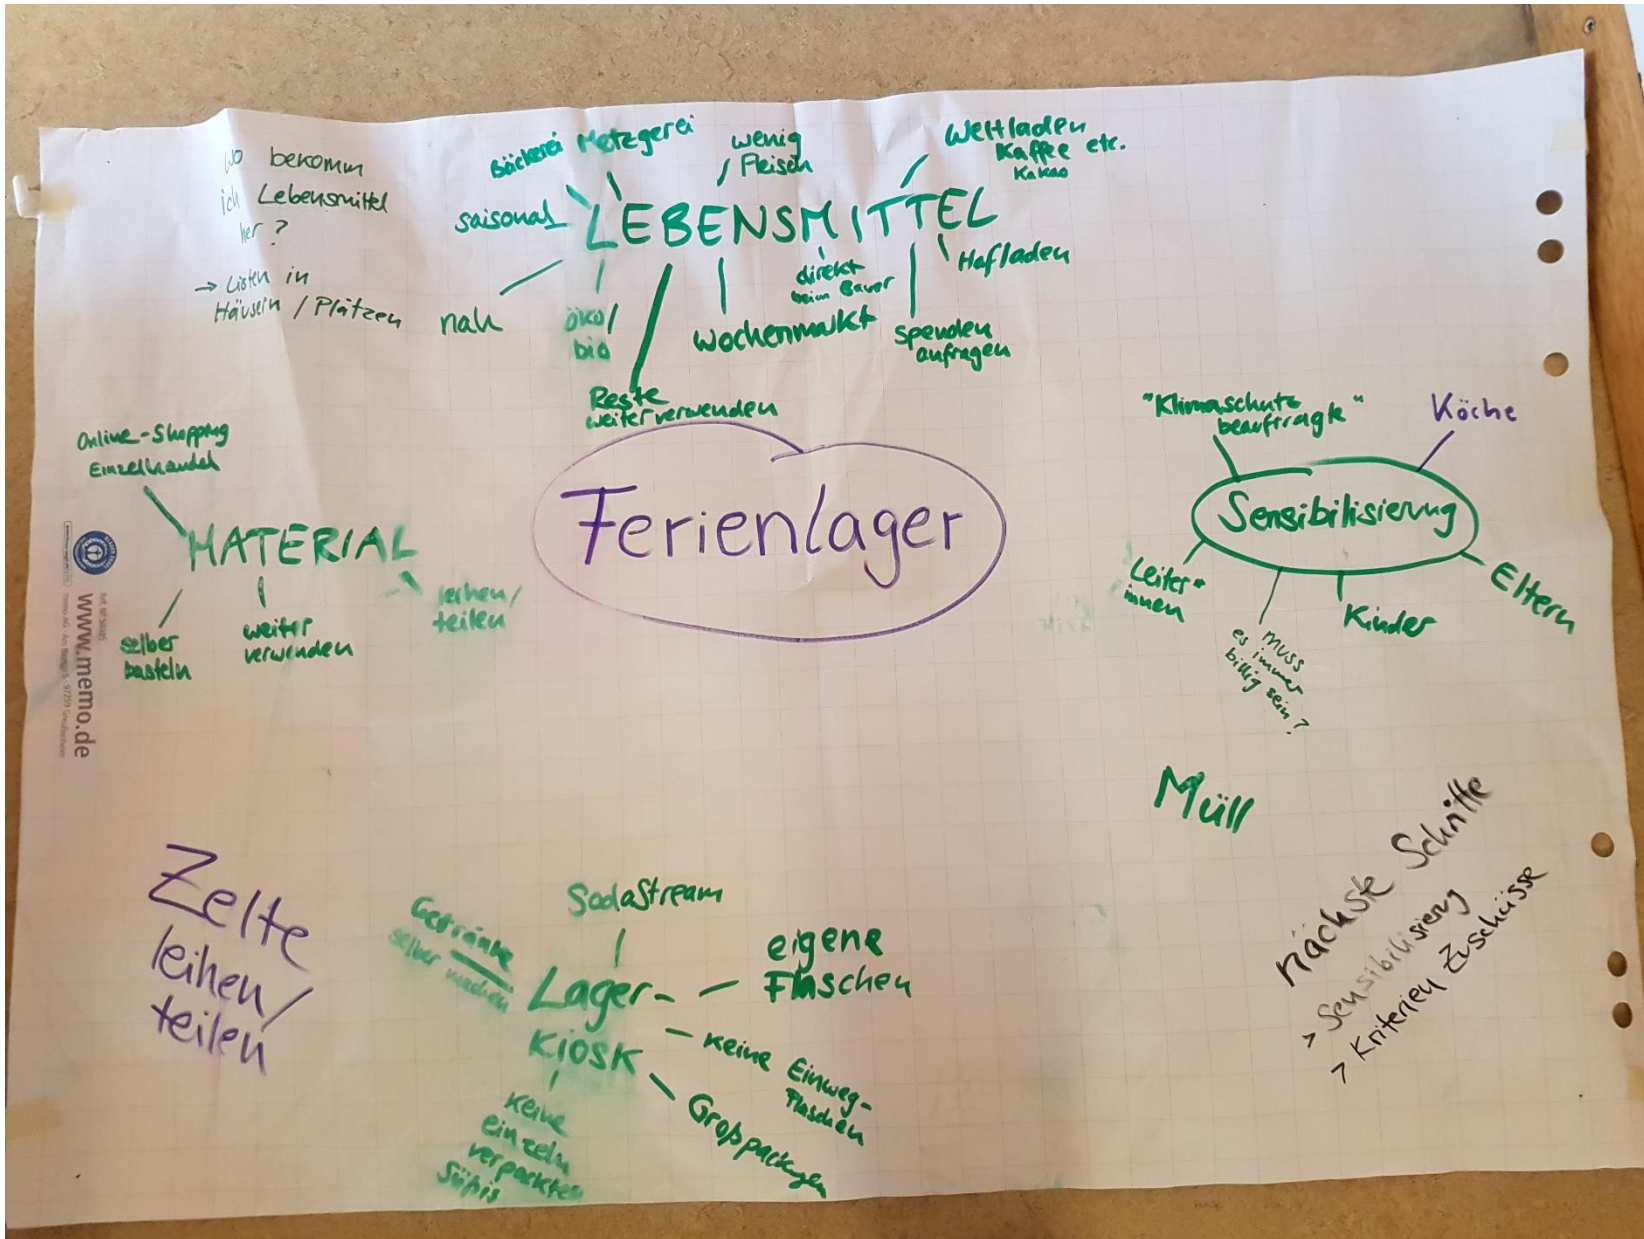 wo bekomm
ich Lebensmittel
her?
→ Listen in
Häusern / Plätzen
Bäckerei
Metzgerei
wenig
Fleisch
Weltladen
Kaffee etc.
Kakao
saisonal
LEBENSMITTEL
nah
öko/
bio
Reste
weiterverwenden
Wochenmarkt
direkt
beim Bauer
Spenden
anfragen
Hofladen
Online-Shopping
Einzelhandel
MATERIAL
selber
basteln
weiter
verwenden
leihen/
teilen
Ferienlager
"Klimaschutz
beauftragte"
Köche
Sensibilisierung
Leiter*
innen
muss
es immer
billig sein?
Kinder
Eltern
www.memo.de
Müll
Zelte
leihen/
teilen
SodaStream
Getränke
selber machen
Lager-
KIOSK
eigene
Flaschen
keine Einweg-
flaschen
Großpackungen
keine
einzeln
verpackten
Süßis
nächste Schritte
> Sensibilisierung
> Kriterien Zuschüsse